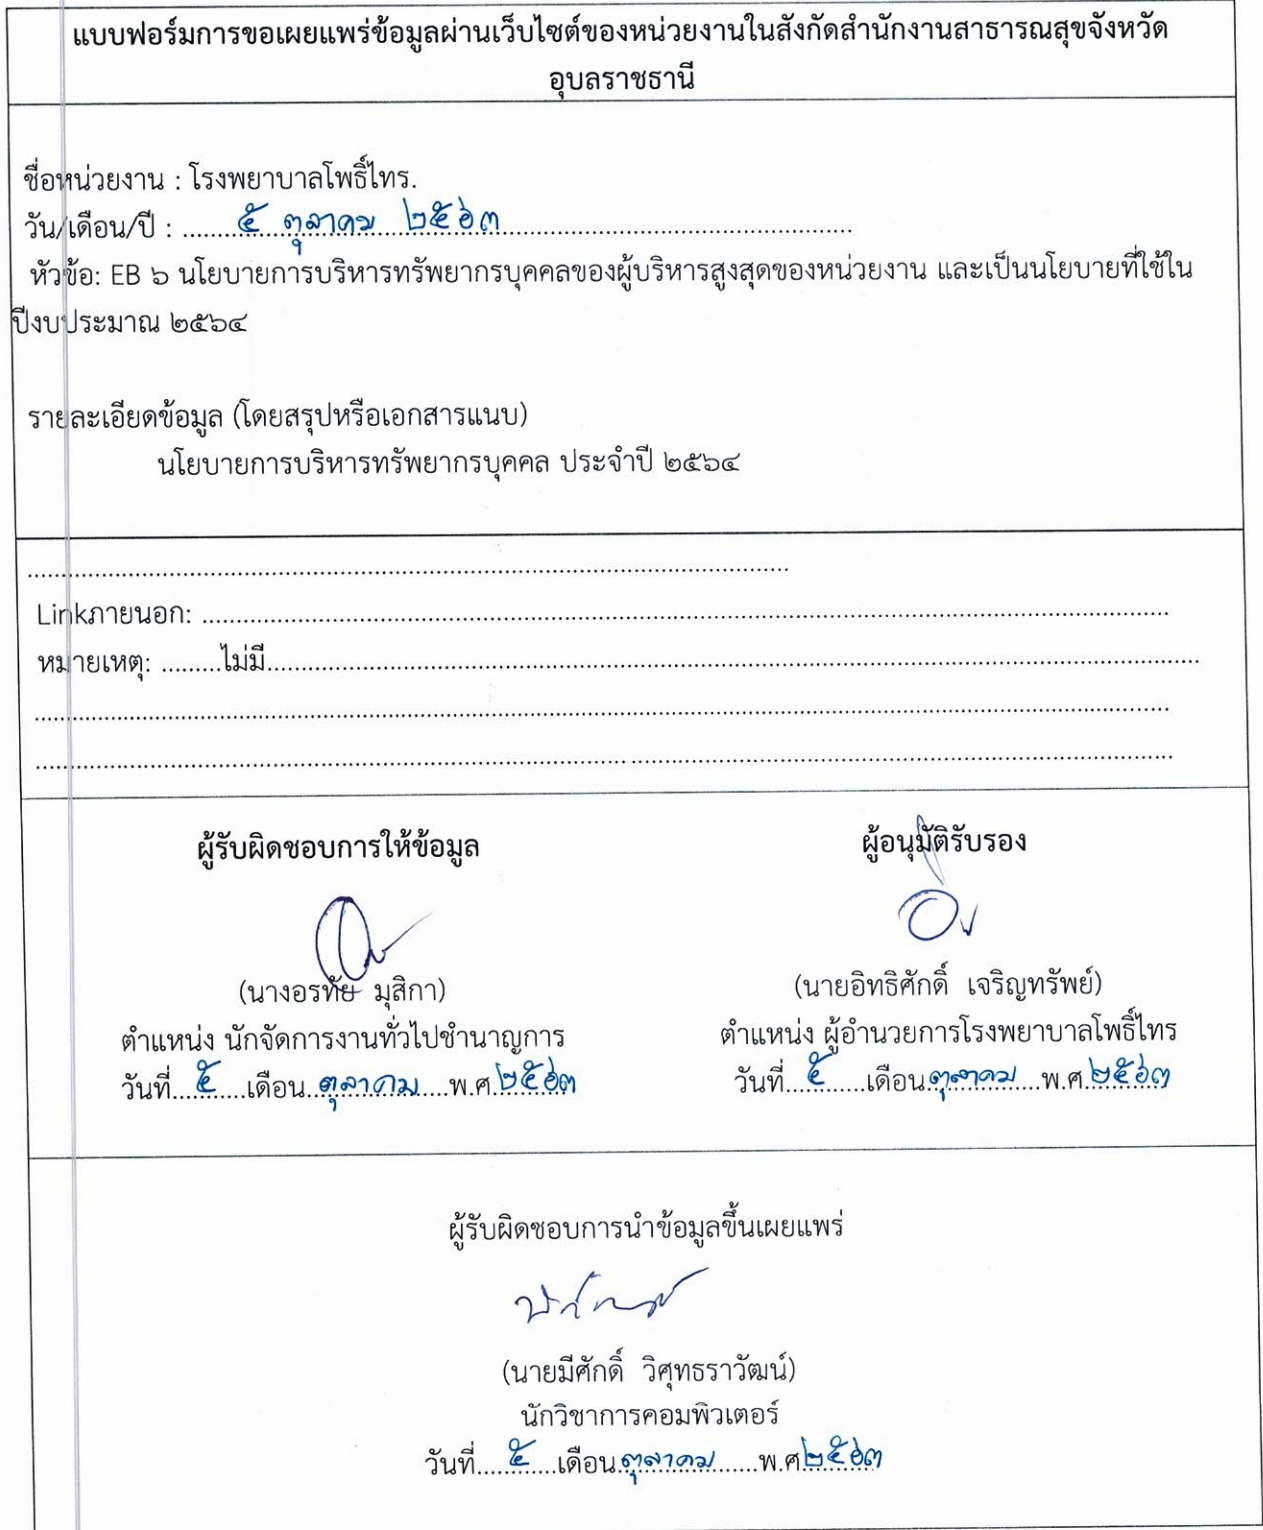 แบบฟอร์มการขอเผยแพร่ข้อมูลผ่านเว็บไซต์ของหน่วยงานในสังกัดสำนักงานสาธารณสุขจังหวัด
อุบลราชธานี
ชื่อหน่วยงาน : โรงพยาบาลโพธิ์ไทร.
วัน/เดือน/ปี : ........๕ ตุลาคม ๒๕๖๓........
หัวข้อ: EB ๖ นโยบายการบริหารทรัพยากรบุคคลของผู้บริหารสูงสุดของหน่วยงาน และเป็นนโยบายที่ใช้ใน
ปีงบประมาณ ๒๕๖๔
รายละเอียดข้อมูล (โดยสรุปหรือเอกสารแนบ)
นโยบายการบริหารทรัพยากรบุคคล ประจำปี ๒๕๖๔
Linkภายนอก: ........
หมายเหตุ: .........ไม่มี.........
ผู้รับผิดชอบการให้ข้อมูล ผู้อนุมัติรับรอง
(นางอรทัย มุสิกา) (นายอิทธิศักดิ์ เจริญทรัพย์)
ตำแหน่ง นักจัดการงานทั่วไปชำนาญการ ตำแหน่ง ผู้อำนวยการโรงพยาบาลโพธิ์ไทร
วันที่...๕....เดือน.ตุลาคม....พ.ศ.๒๕๖๓ วันที่...๕....เดือน.ตุลาคม...พ.ศ.๒๕๖๓
ผู้รับผิดชอบการนำข้อมูลขึ้นเผยแพร่
(นายมีศักดิ์ วิศุทธราวัฒน์)
นักวิชาการคอมพิวเตอร์
วันที่....๕....เดือน.ตุลาคม.....พ.ศ.๒๕๖๓